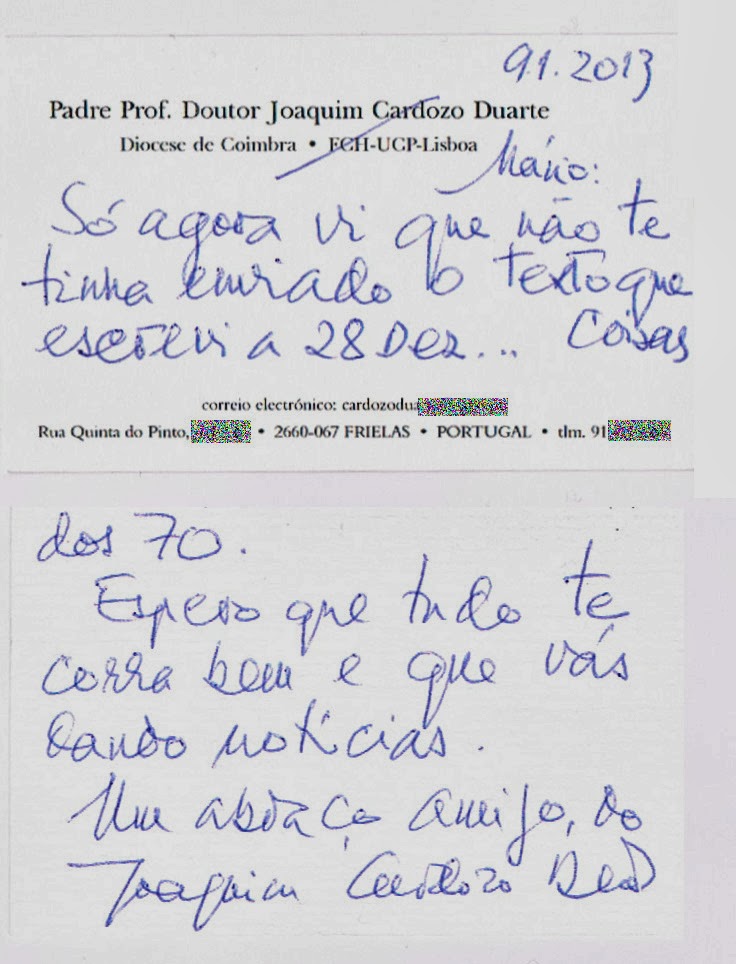 9.1.2013
Padre Prof. Doutor Joaquim Cardozo Duarte
Diocese de Coimbra • FCH-UCP-Lisboa
Mário:
Só agora vi que não te
tinha enviado o texto que
escrevi a 28 Dez... Coisas
correio electrónico: cardozodua
Rua Quinta do Pinto, • 2660-067 FRIELAS • PORTUGAL • tlm. 91
dos 70.
Espero que tudo te
corra bem e que vás
dando notícias.
Um abraço amigo, do
Joaquim Cardozo